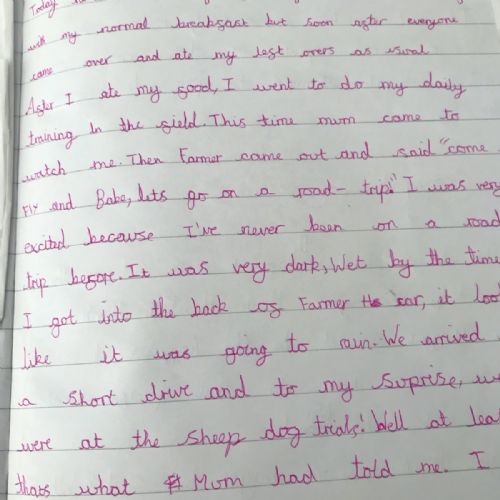 Today
with my normal breakgast but soon agter everyone
came over and ate my legt overs as usual
Agter I ate my good, I went to do my daily
training In the gield. This time mum came to
watch me. Then Farmer came out and said "come
Fly and Babe, lets go on a road- trip!" I was very
excited because I've never been on a road
trip begore. It was very dark, Wet by the time
I got into the back og Farmer H car, it loo
like it was going to rain. We arrived
a short drive and to my suprise, w
were at the sheep dog trials! Well at lea
thats what Mum had told me. I